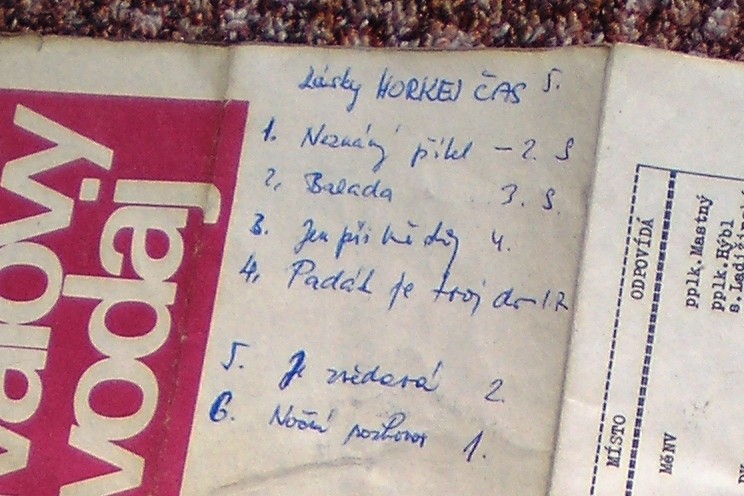 Lásky HORKEJ ČAS 5.
1. Neznámý přítel - 2. S
2. Balada 3. S.
3. Jen při tě 4.
4. Padák je tvůj
5. Je zvědavá 2.
6. Noční rozhovor 1.
vodaj
ODPOVÍDÁ
pplk. Mastný
pplk. Hýbl
MÍSTO
MěNV